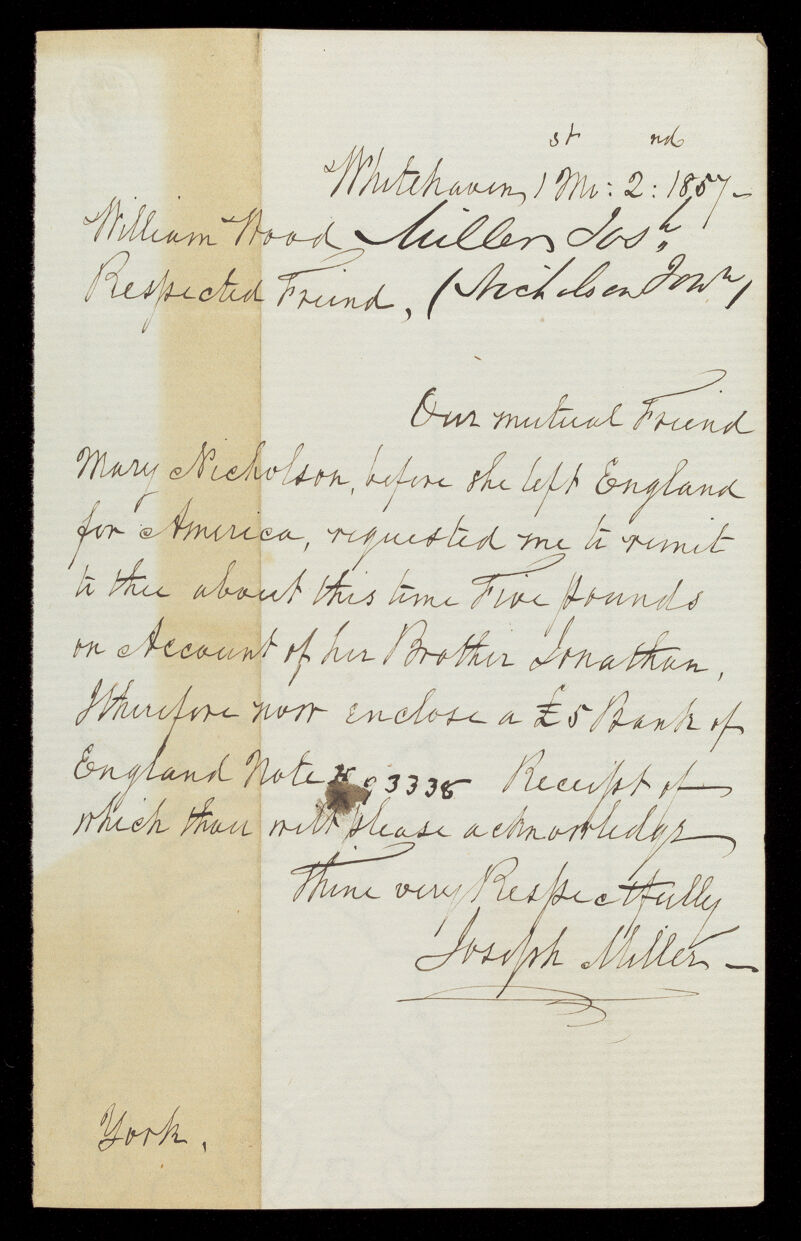 Whitehaven 1st Mo: 2nd: 1857 –
William Wood Miller Josh
Respected Friend, (Nicholson Jonn)
Our mutual Friend
Mary Nicholson, before she left England
for America, requested me to remit
to thee about this time Five pounds
on Account of her Brother Jonathan,
I therefore now enclose a £5 Bank of
England Note 93338 Receipt of
which thou wilt please acknowledge
Thine very Respectfully
Joseph Miller –
York.